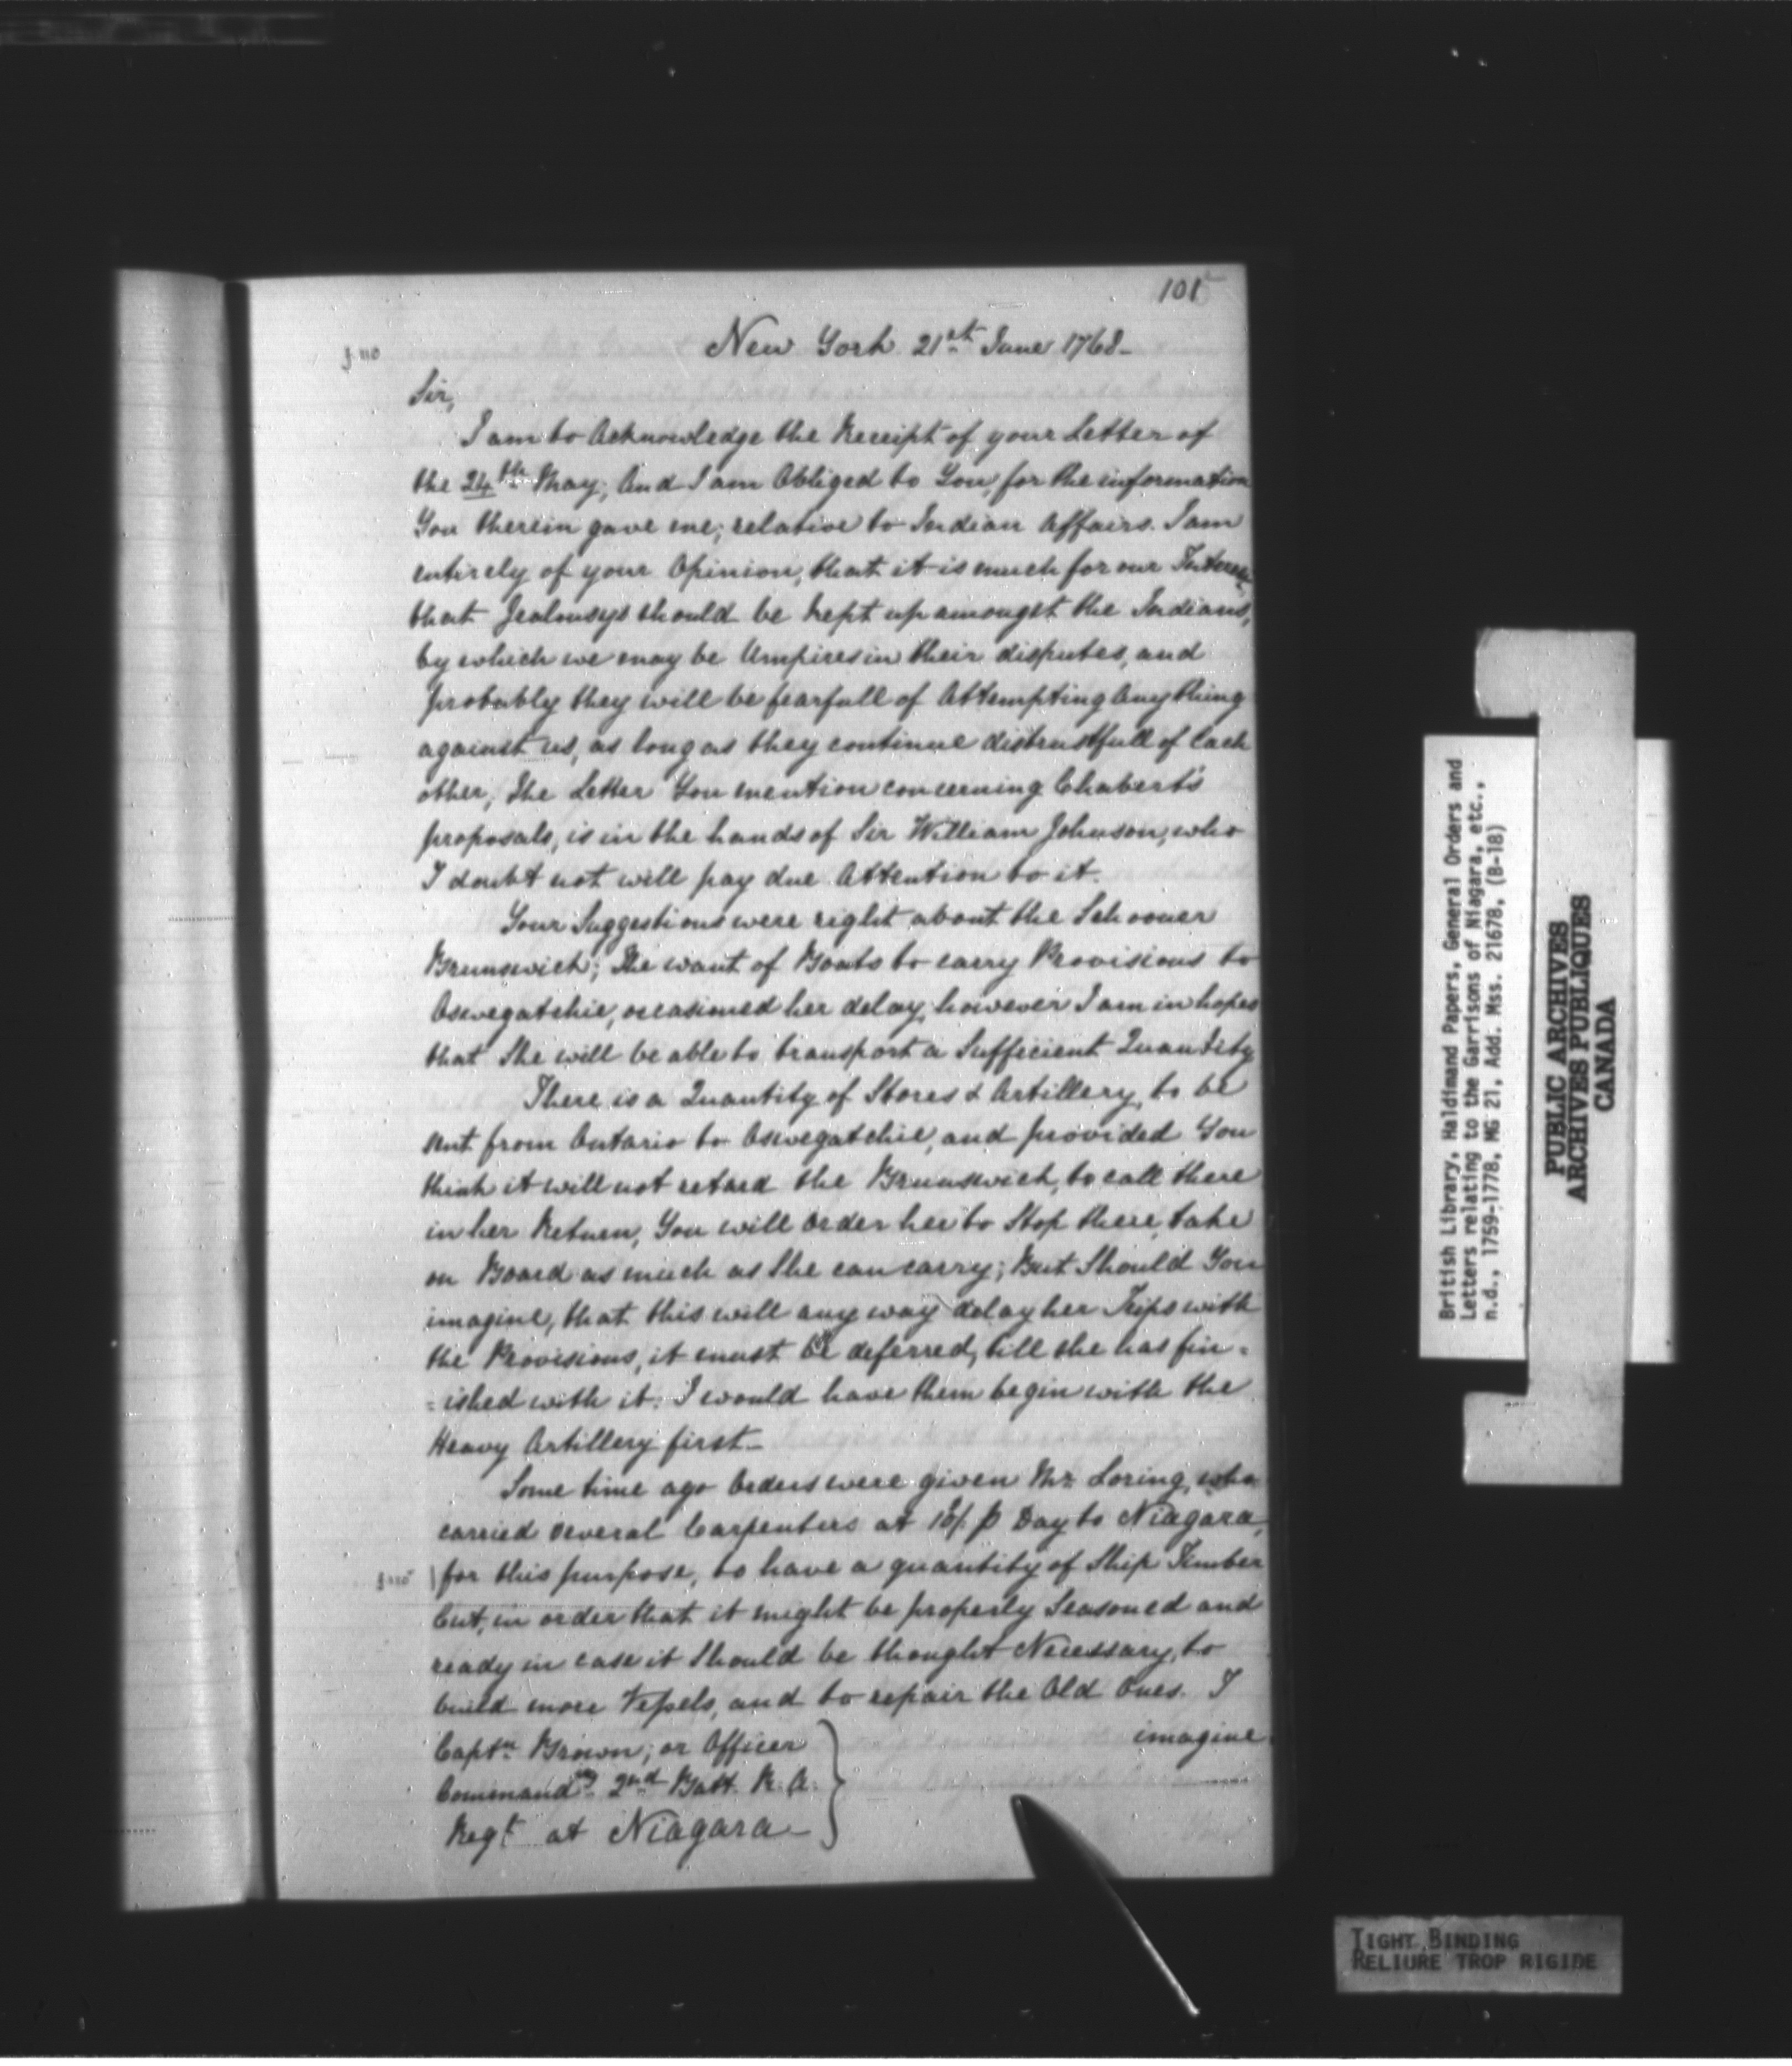 101
New York 21st June 1768-
f. 110
Sir,
I am to Acknowledge the Receipt of your Letter of
the 24th May; And I am Obliged to You, for the information
You therein gave me, relative to Indian Affairs. I am
entirely of your Opinion, that it is much for our Interest
that Jealousys should be kept up amongst the Indians,
by which we may be Umpires in their disputes, and
probably they will be fearfull of Attempting Any thing
against us, as long as they continue distrustfull of Each
other; The Letter You mention concerning Chabert's
proposals, is in the hands of Sir William Johnson, who
I doubt not will pay due Attention to it.
Your Suggestions were right about the Schooner
Brunswick; The want of Boats to carry Provisions to
Oswegatchie, occasioned her delay, however I am in hopes
that She will be able to transport a Sufficient Quantity
There is a Quantity of Stores & Artillery, to be
sent from Ontario to Oswegatchie, and provided You
think it will not retard the Brunswick, to call there
in her Return, You will Order her to Stop there, take
on Board as much as She can carry; But Should You
imagine, that this will any way delay her Trips with
the Provisions, it must be deferred, till she has fin=
=ished with it. I would have them begin with the
Heavy Artillery first-
Some time ago Orders were given Mr. Loring, who
carried several Carpenters at p Day to Niagara,
for this purpose, to have a quantity of Ship Timber
Cut, in order that it might be properly Seasoned and
ready in case it Should be thought Necessary, to
build more Vessels, and to repair the Old Ones. I
imagine
Captn. Brown; or Officer
Commandg. 2nd Batt. R. A.
Regt at Niagara-
British Library, Haldimand Papers, General Orders and
Letters relating to the Garrisons of Niagara, etc.,
n.d., 1759-1778, MG 21, Add. Mss. 21678, (B-18)
PUBLIC ARCHIVES
ARCHIVES PUBLIQUES
CANADA
TIGHT BINDING
RELIURE TROP RIGIDE